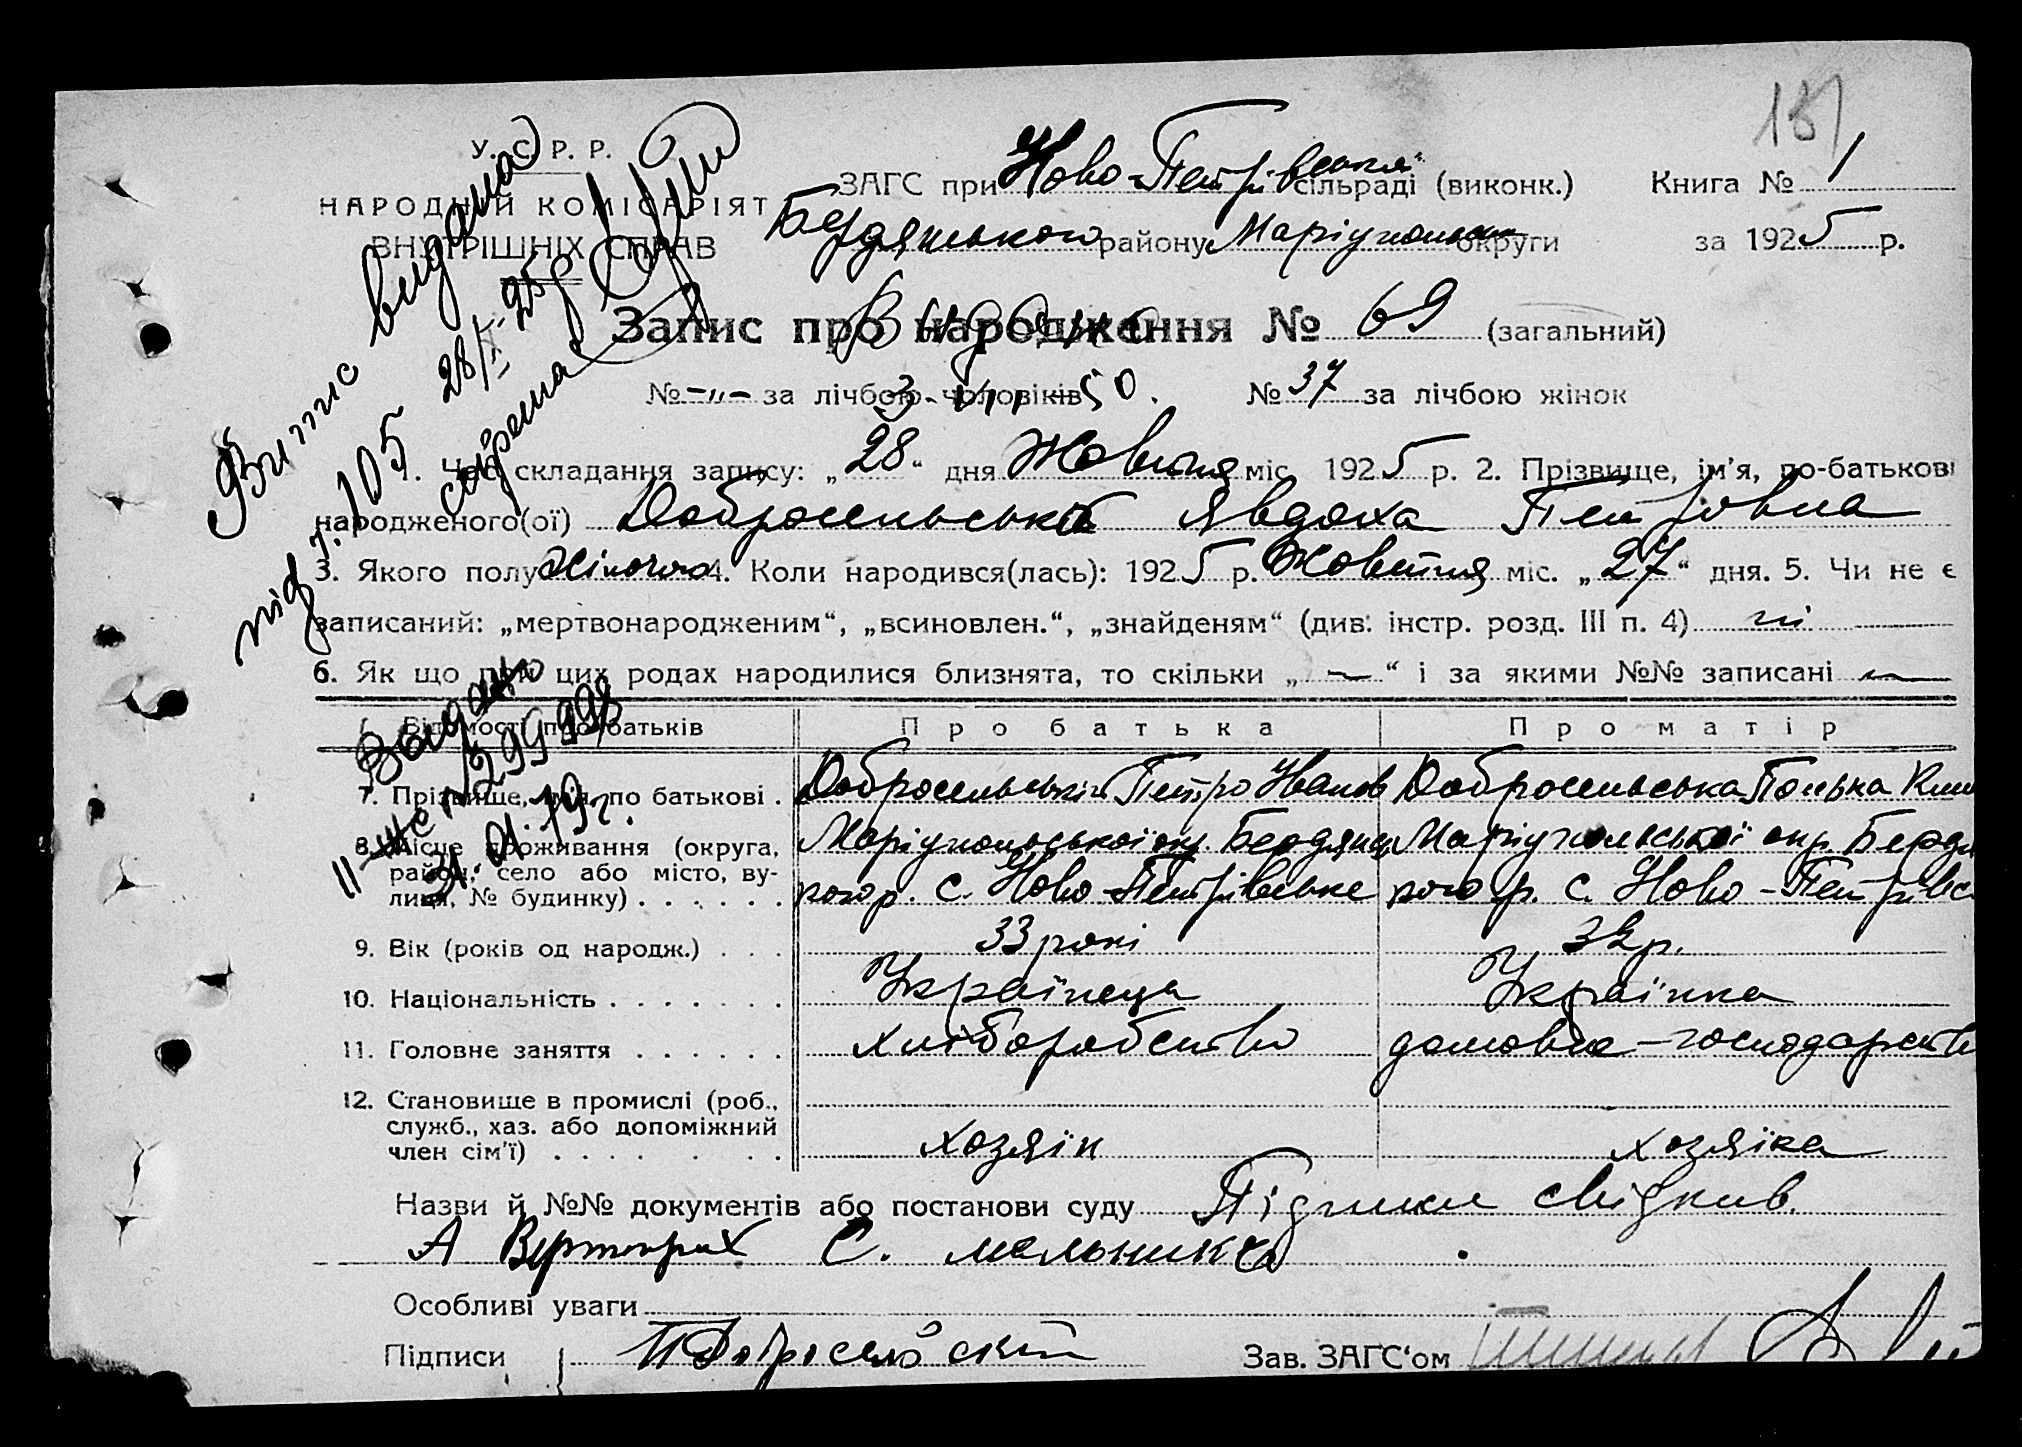 181
У. С. Р. Р.
НАРОДНІЙ КОМІСАРІЯТ
ВНУТРІШНІХ СПРАВ
ЗАГС при Ново-Петрівській сільраді (виконк.) Книга № 1
Бердянського району Маріупольськ округи за 1925 р.
Витяг видана
під ч. 105 28/X-25р
Запис про народження № 69 (загальний)
Видано
3-VIII-50.
№ -„- за лічбою чоловіків № 37 за лічбою жінок
1. Час складання запису: „28“ дня Жовтня міс. 1925 р. 2. Прізвище, ім'я, по-батькові
народженого(ої) Добросельська Явдоха Петровна
3. Якого полу Жіночого 4. Коли народився(лась): 1925 р. Жовтня міс. „27“ дня. 5. Чи не є
записаний: „мертвонародженим“, „всиновлен.“, „знайденям“ (див. інстр. розд. III п. 4) ні
6. Як що при цих родах народилися близнята, то скільки „ — “ і за якими №№ записані —
Відомості про батьків Про батька Про матір
Выдано
299998
7. Прізвище, ім'я, по батькові . Добросельській Петро Іванов Добросельська Полька Клим
8. Місце проживання (округа, Маріупольської окр. Бердянсь Маріупольської окр. Бердя
район, село або місто, ву- кого р. с. Ново-Петрівське кого р. с. Ново-Петрівс
лиця, № будинку) . . . . . .
9. Вік (років од народж.) . . . 33 роки 32 р.
10. Національність . . . . . . . Українець Українка
11. Головне заняття . . . . . . хліборобство домовне-господарств
12. Становище в промислі (роб.,
служб., хаз. або допоміжний
член сім'ї) . . . . . . . . хозяїн хозяїка
Назви й №№ документів або постанови суду Підписи свідків.
А С. Мельників
Особливі уваги
Підписи П Добросельский Зав. ЗАГС'ом